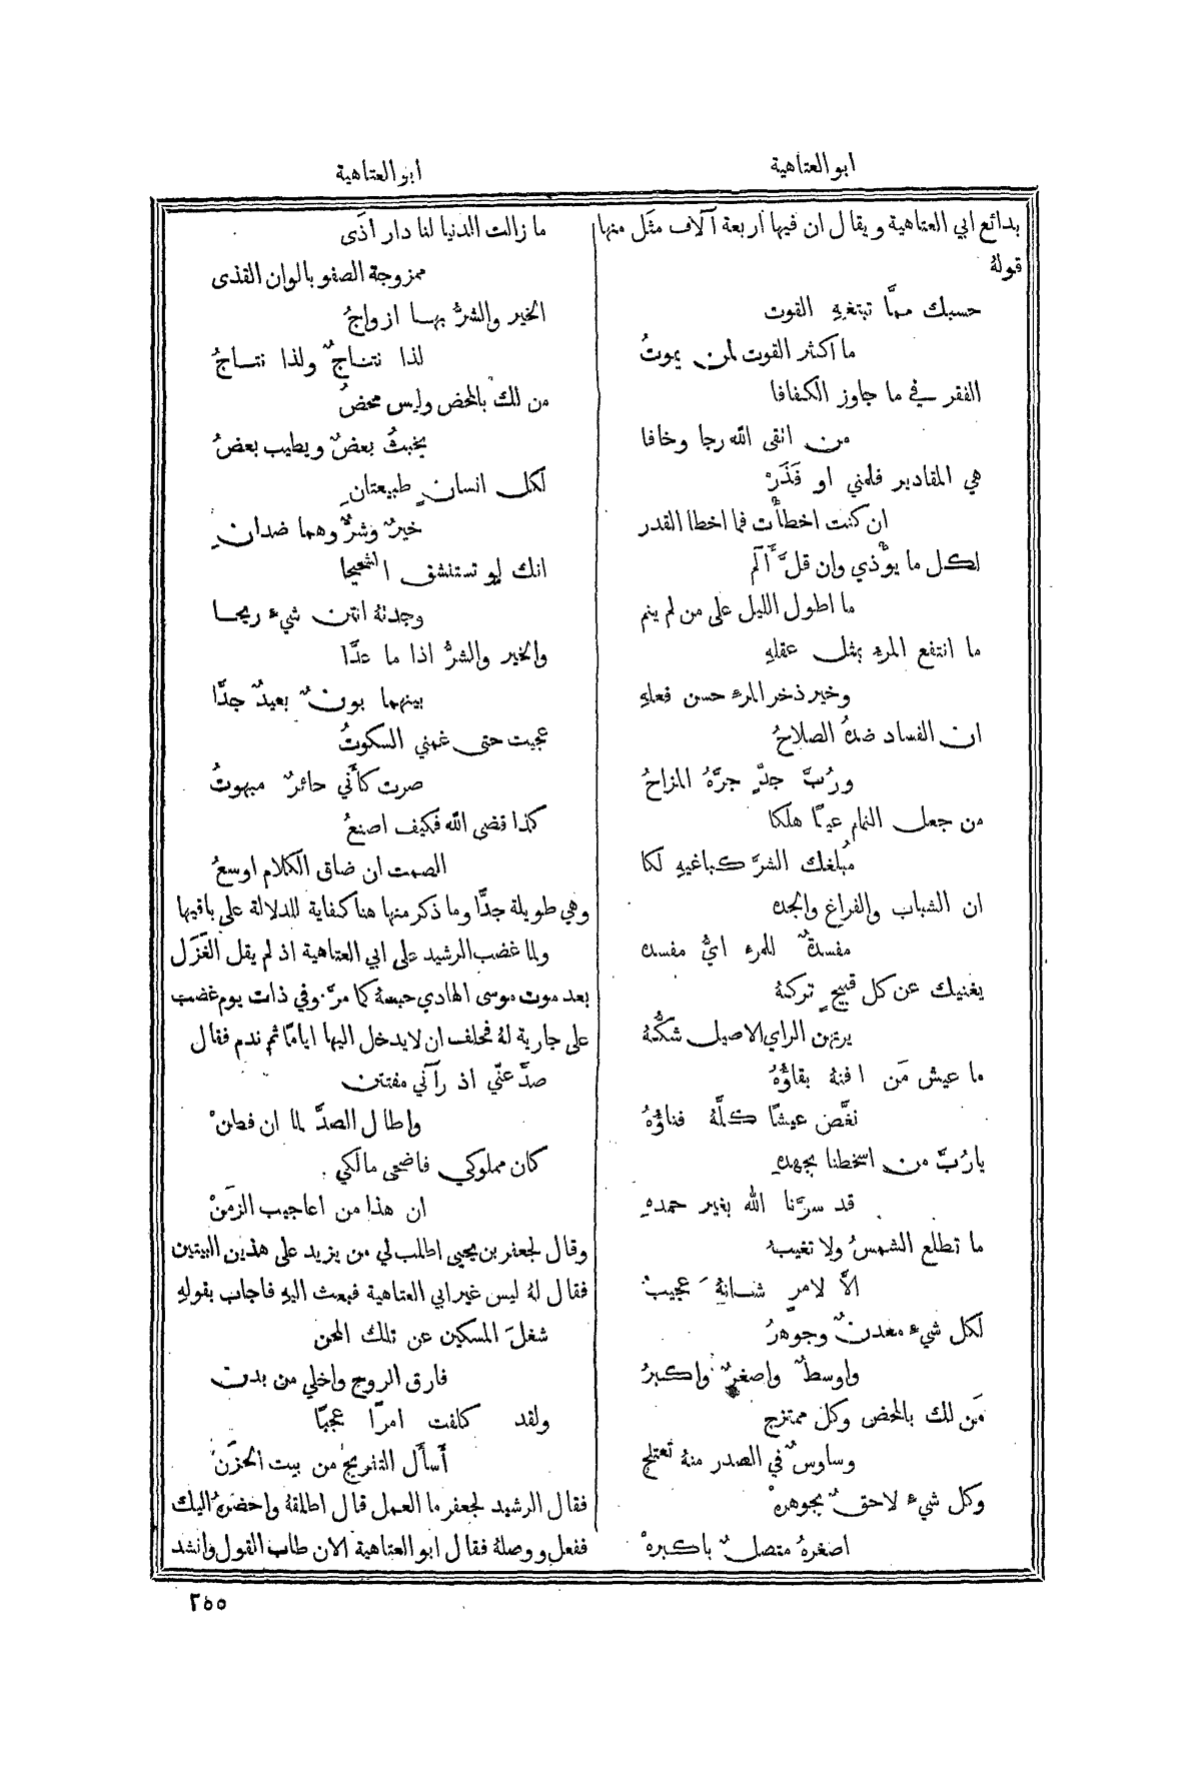 ابو العتاهية
ابو العتاهية
بدائع ابي العتاهية ويقال ان فيها اربعة آلاف مثَل منها
قولهُ
حسبك ممَّا تبتغيهِ القوت
ما اكثر القوت لمن يموتُ
الفقر في ما جاوز الكفافا
من اتقى الله رجا وخافا
هي المقادير فلمني او فَذَرْ
ان كنت اخطأْت فما اخطا القدر
لكل ما يؤْذي وان قلَّ أَلَم
ما اطول الليل على من لم ينم
ما انتفع المرءُ بمثل عقلهِ
وخير ذخر المرءِ حسن فعلهِ
ان الفساد ضدهُ الصلاحُ
ورُبَّ جدٍّ جرَّهُ المزاحُ
من جعل النمام عينًا هلكا
مُبلغك الشرَّ كباغيهِ لكا
ان الشباب والفراغ والجده
مفسدةٌ للمرءِ ايُّ مفسده
يغنيك عن كل قبيحٍ تركهُ
يرتهن الراي الاصيل شكُّهُ
ما عيش مَن افتهُ بقاؤُهُ
نغَّص عيشًا كلَّهُ فناؤُهُ
يارُبَّ من اسخطنا بجهدهِ
قد سرَّنا الله بغير حمدهِ
ما تطلع الشمسُ ولا تغيبُ
الَّا لامرٍ شانهُ عجيبُ
لكل شيءٍ معدنٌ وجوهرُ
واوسطٌ واصغرٌ واكبرُ
مَن لك بالمحض وكل ممتزج
وساوسٌ في الصدر منهُ تعتلج
وكل شيءٍ لاحقٌ بجوهرهْ
اصغرهُ متصلٌ باكبرهْ
ما زالت الدنيا لنا دار اذَى
ممزوجة الصفو بالوان القذى
الخير والشرُّ بها ازواجُ
لذا نتاجٌ ولذا نتاجُ
من لك بالمحض وليس محضُ
يخبثُ بعضٌ ويطيب بعضُ
لكل انسانٍ طبيعتانِ
خيرٌ وشرٌّ وهما ضدانِ
انك لو تستنشق الشحيحا
وجدتهُ انتن شيءٍ ريحا
والخير والشرُّ اذا ما عدَّا
بينهما بونٌ بعيدٌ جدَّا
عجبت حتى غمني السكوتُ
صرت كأَني حائرٌ مبهوتُ
كذا قضى الله فكيف اصنعُ
الصمت ان ضاق الكلام اوسعُ
وهي طويلة جدًّا وما ذكر منها هنا كفاية للدلالة على باقيها
ولما غضب الرشيد على ابي العتاهية اذ لم يقل الغَزَل
بعد موت موسى الهادي حبسهُ كما مرَّ وفي ذات يوم غضب
على جارية لهُ فحلف ان لا يدخل اليها ايامًا ثم ندم فقال
صدَّ عنّي اذ رآني مفتتن
واطال الصدَّ لما ان فطنْ
كان مملوكي فاضحى مالكي
ان هذا من اعاجيب الزمَنْ
وقال لجعفر بن يحيى اطلب لي من يزيد على هذين البيتين
فقال لهُ ليس غير ابي العتاهية فبعث اليهِ فاجاب بقولهِ
شغلَ المسكين عن تلك المحن
فارق الروح واخلى من بدن
ولقد كلفت امرًا عجبًا
أَسأَل التفريجَ من بيت الحزَنْ
فقال الرشيد لجعفر ما العمل قال اطلقهُ واحضرهُ اليك
ففعل ووصلهُ فقال ابو العتاهية الان طاب القول وانشد
٢٥٥